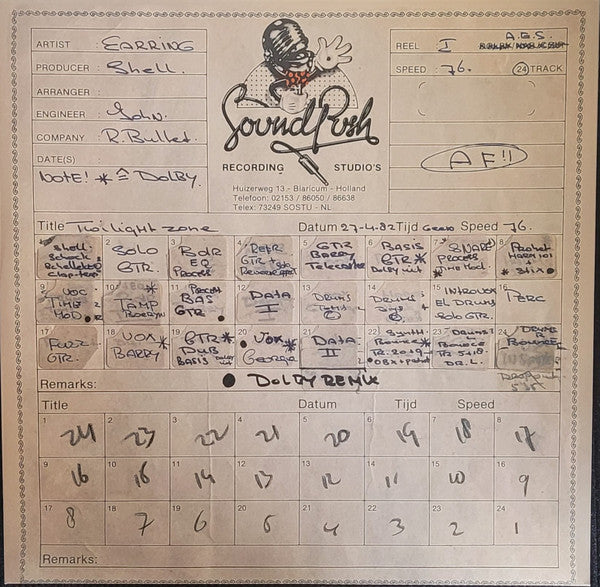 ARTIST : EARRING
PRODUCER : Shell.
ARRANGER :
ENGINEER : John.
COMPANY : R.Bullet.
DATE(S)
NOTE! * ≙ DOLBY.
Sound Push
RECORDING STUDIO'S
Huizerweg 13 - Blaricum - Holland
Telefoon: 02153 / 86050 / 86638
Telex: 73249 SOSTU - NL
REEL : I A.G.S.
SPEED : 76. 24 TRACK
AF!!
Title Twilight zone Datum 27-4.82 Tijd Speed 76.
1 Shell.
Schock
2 SOLO
GTR.
3 BDR
EQ
PROCES
4 REFR
GTR +
5 GTR
BARRY
Telecaster
6 BASIS
GTR *
DOLBY uit
7 SNARE
PROCES
*TIME MOD.
8 Prophet
9 VOC
TIME
MOD
10 *
TAMP
11 PROCES
BAS
GTR.
12 DATA
I
13 DRUMS
14 DRUMS
15
EL DRUMS
SOLO GTR.
16 PERC
17 FUZZ
GTR.
18 VOX *
BARRY
19 GTR *
DUB
BASIS
20 VOX *
George
21 DATA
II
22 SYNTH.
Bounce *
TR. 20+9
23 DRUMS
BOUNCE
DR. L.
24 DRUMS R
BOUNCE
Remarks: ● DOLBY REMIX
Title Datum Tijd Speed
1 24 2 23 3 22 4 21 5 20 6 19 7 18 8 17
9 16 10 16 11 14 12 13 13 12 14 11 15 10 16 9
17 8 18 7 19 6 20 5 21 4 22 3 23 2 24 1
Remarks: